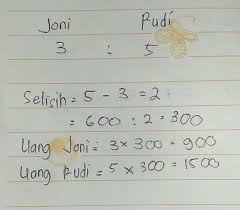 Joni Rudi
3 : 5
Selisih = 5 - 3 = 2
= 600 : 2 = 300
Uang Joni = 3 x 300 = 900
Uang Rudi = 5 x 300 = 1500